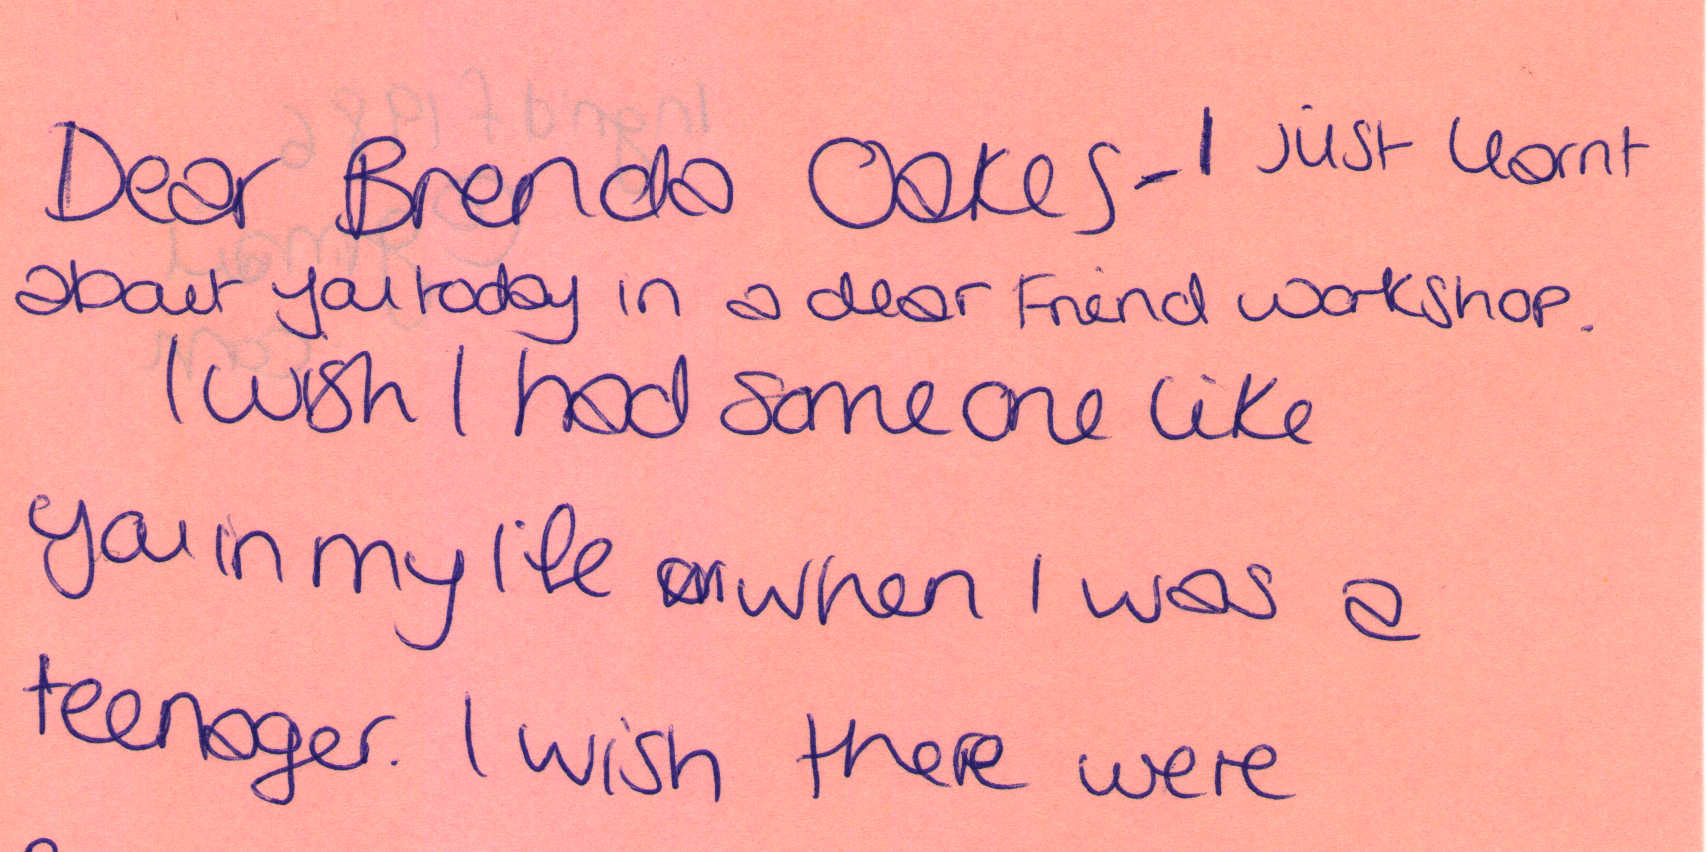 Dear Brenda Oakes - I just learnt
about you today in a dear Friend workshop.
I wish I had someone like
you in my life when I was a
teenager. I wish there were